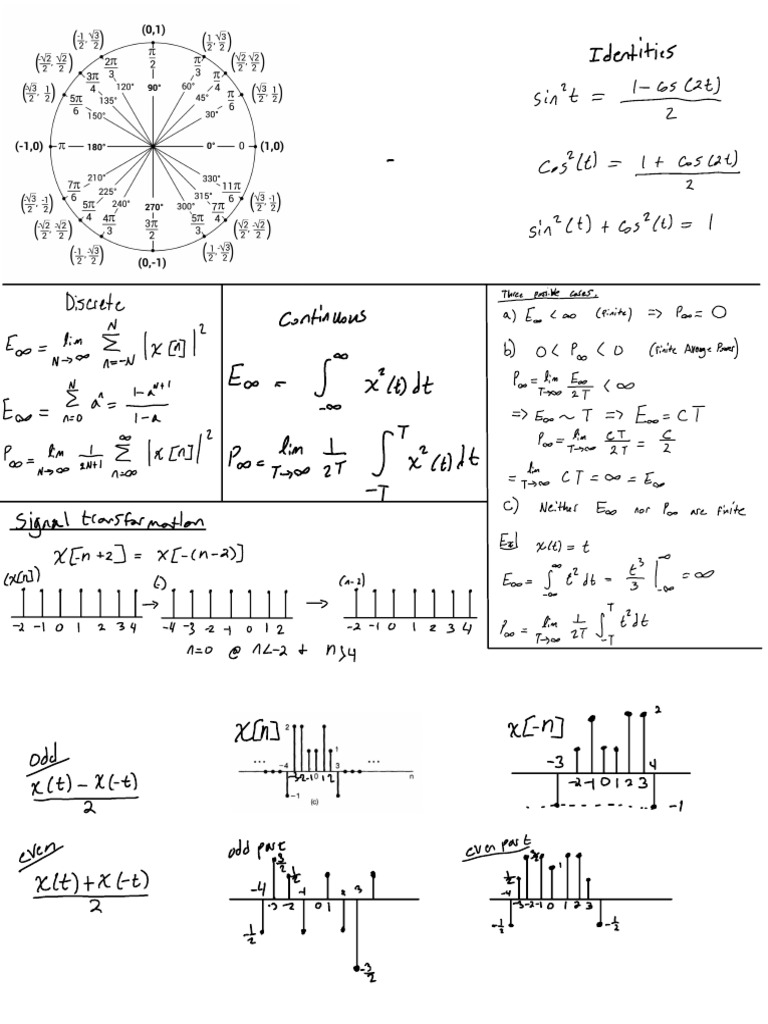 (0,1)
(-1/2, √3/2) π/2 (1/2, √3/2)
(-√2/2, √2/2) 2π/3 π/3 (√2/2, √2/2)
(-√3/2, 1/2) 3π/4 120° 90° 60° π/4 (√3/2, 1/2)
5π/6 135° 45° π/6
150° 30°
(-1,0) π 180° 0° 0 (1,0)
210° 330°
7π/6 225° 315° 11π/6
(-√3/2, -1/2) 5π/4 240° 270° 300° 7π/4 (√3/2, -1/2)
(-√2/2, -√2/2) 4π/3 3π/2 5π/3 (√2/2, -√2/2)
(-1/2, -√3/2) (1/2, -√3/2)
(0,-1)
Identities
sin²t = (1-cos(2t))/2
cos²(t) = (1 + cos(2t))/2
sin²(t) + cos²(t) = 1
Discrete
E∞ = lim N→∞ Σ N n=-N |x[n]|²
E∞ = Σ N n=0 aⁿ = (1-a^(N+1))/(1-a)
P∞ = lim N→∞ 1/(2N+1) Σ ∞ n=∞ |x[n]|²
Continuous
E∞ = ∫ ∞ -∞ x²(t)dt
P∞ = lim T→∞ 1/2T ∫ T -T x²(t)dt
Three possible cases.
a) E∞ < ∞ (finite) => P∞ = 0
b) 0 < P∞ < 0 (finite Average Power)
P∞ = lim T→∞ E∞/2T < ∞
=> E∞ ~ T => E∞ = CT
P∞ = lim T→∞ CT/2T = C/2
= lim T→∞ CT = ∞ = E∞
c) Neither E∞ nor P∞ are finite
Ex x(t) = t
E∞ = ∫ ∞ -∞ t²dt = t³/3 | ∞ -∞ = ∞
P∞ = lim T→∞ 1/2T ∫ T -T t²dt
Signal transformation
x[-n+2] = x[-(n-2)]
(x[n]) (-) (n-2)
-2 -1 0 1 2 3 4 → -4 -3 -2 -1 0 1 2 → -2 -1 0 1 2 3 4
n=0 @ n<-2 + n>4
odd
(x(t) - x(-t))/2
x[n]
2
1
-4 3
-3 -2 -1 0 1 2 n
-1
(c)
x[-n]
2
-3 4
-2 -1 0 1 2 3
-1
even
(x(t) + x(-t))/2
odd part
3/2
1/2
-4 -3 -2 -1 0 1 2 3
1/2
-3/2
even part
3/2 1
1/2
-4 -3 -2 -1 0 1 2 3
-1/2 -1/2